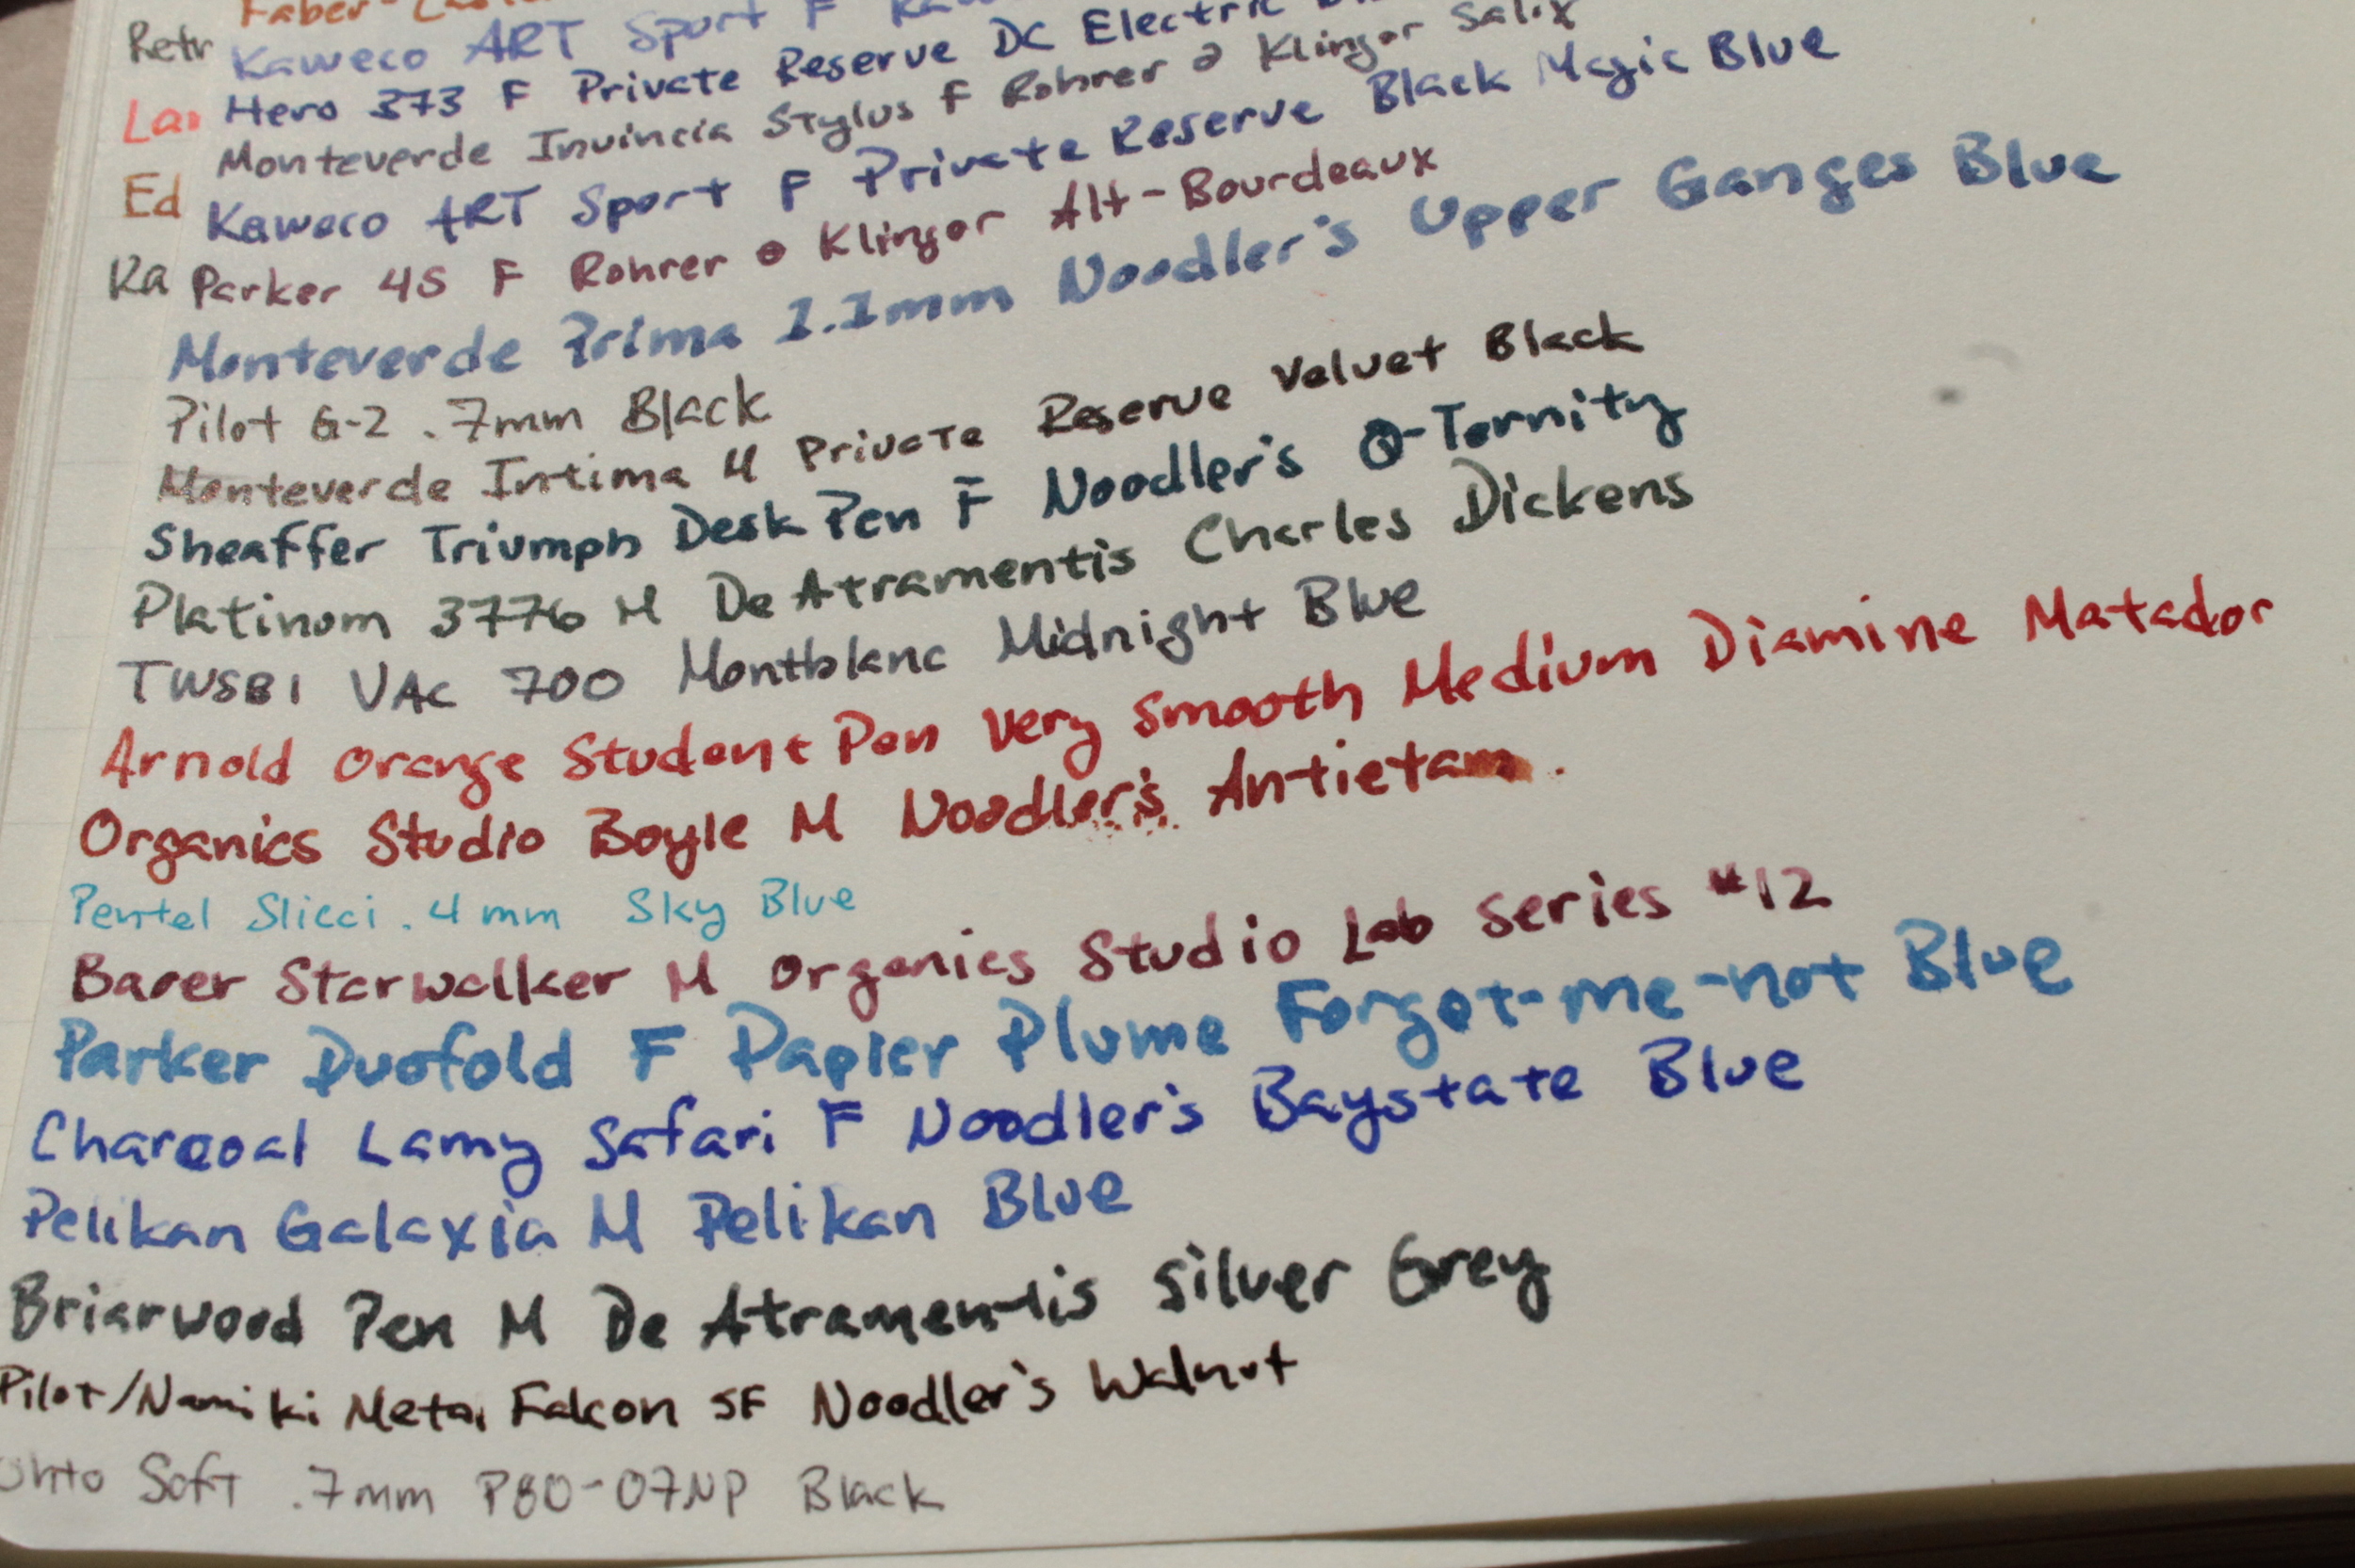 Faber-
Retr Kaweco ART Sport F
Hero 373 F Private Reserve DC Electric
La Monteverde Invincia Stylus F Rohrer & Klingor Salix
Ed Kaweco ART Sport F Private Reserve Black Magic Blue
Ka Parker 45 F Rohrer & Klingor Alt-Bourdeaux
Monteverde Prima 1.1mm Noodler's Upper Ganges Blue
Pilot G-2 .7mm Black
Monteverde Intima M Private Reserve Velvet Black
Sheaffer Triumph Desk Pen F Noodler's Q-Ternity
Platinum 3776 M De Atramentis Charles Dickens
TWSBI VAC 700 Montblanc Midnight Blue
Arnold Orange Student Pen Very Smooth Medium Diamine Matador
Organics Studio Boyle M Noodler's Antietam
Pentel Slicci .4mm Sky Blue
Baoer Starwalker M Organics Studio Lab Series #12
Parker Duofold F Papier Plume Forget-me-not Blue
Charcoal Lamy Safari F Noodler's Baystate Blue
Pelikan Galaxia M Pelikan Blue
Briarwood Pen M De Atramentis Silver Grey
Pilot/Namiki Metal Falcon SF Noodler's Walnut
Ohto Soft .7mm P80-07NP Black